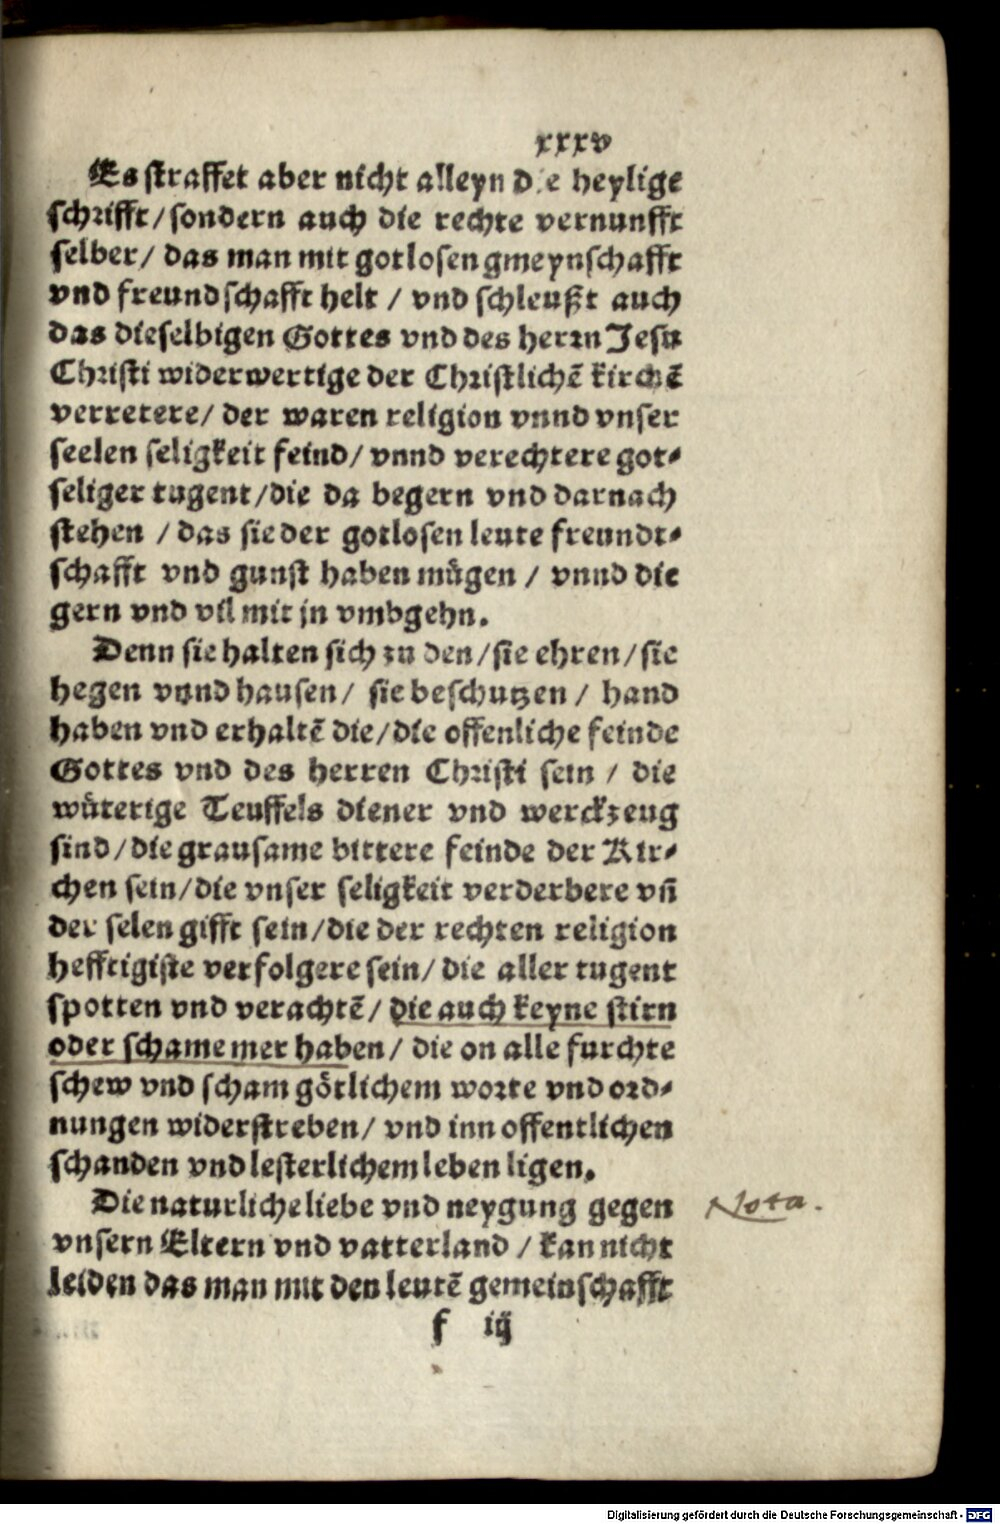 xxxv
Es straffet aber nicht alleyn die heylige
schrifft/sondern auch die rechte vernunfft
selber/ das man mit gotlosen gmeynschafft
vnd freundschafft helt / vnd schleußt auch
das dieselbigen Gottes vnd des herrn Jesu
Christi widerwertige der Christlichē kirchē
verretere/ der waren religion vnnd vnser
seelen seligkeit feind/ vnnd verechtere got⸗
seliger tugent/die da begern vnd darnach
stehen / das sie der gotlosen leute freundt⸗
schafft vnd gunst haben mügen / vnnd die
gern vnd vil mit jn vmbgehn.
Denn sie halten sich zu den/sie ehren/sie
hegen vnnd hausen/ sie beschutzen / hand
haben vnd erhaltē die/die offenliche feinde
Gottes vnd des herren Christi sein / die
wüterige Teuffels diener vnd werckzeug
sind/die grausame bittere feinde der Kir⸗
chen sein/die vnser seligkeit verderbere vn̄
der selen gifft sein/die der rechten religion
hefftigiste verfolgere sein/ die aller tugent
spotten vnd verachtē/ die auch keyne stirn
oder schame mer haben/ die on alle furchte
schew vnd scham götlichem worte vnd ord⸗
nungen widerstreben/ vnd inn offentlichen
schanden vnd lesterlichem leben ligen.
Die naturliche liebe vnd neygung gegen
Nota.
vnsern Eltern vnd vatterland / kan nicht
leiden das man mit den leutē gemeinschafft
f iij
Digitalisierung gefördert durch die Deutsche Forschungsgemeinschaft - DFG